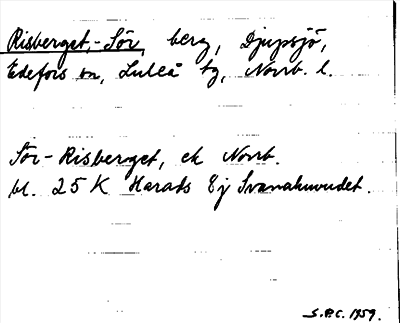 Risberget,-Sör, berg, Djupsjö,
Edefors sn, Luleå tg, Norrb. l.
Sör-Risberget, ek Norrb.
bl. 25 K Harads 8j Svanahuvudet.
S.P.C. 1959.